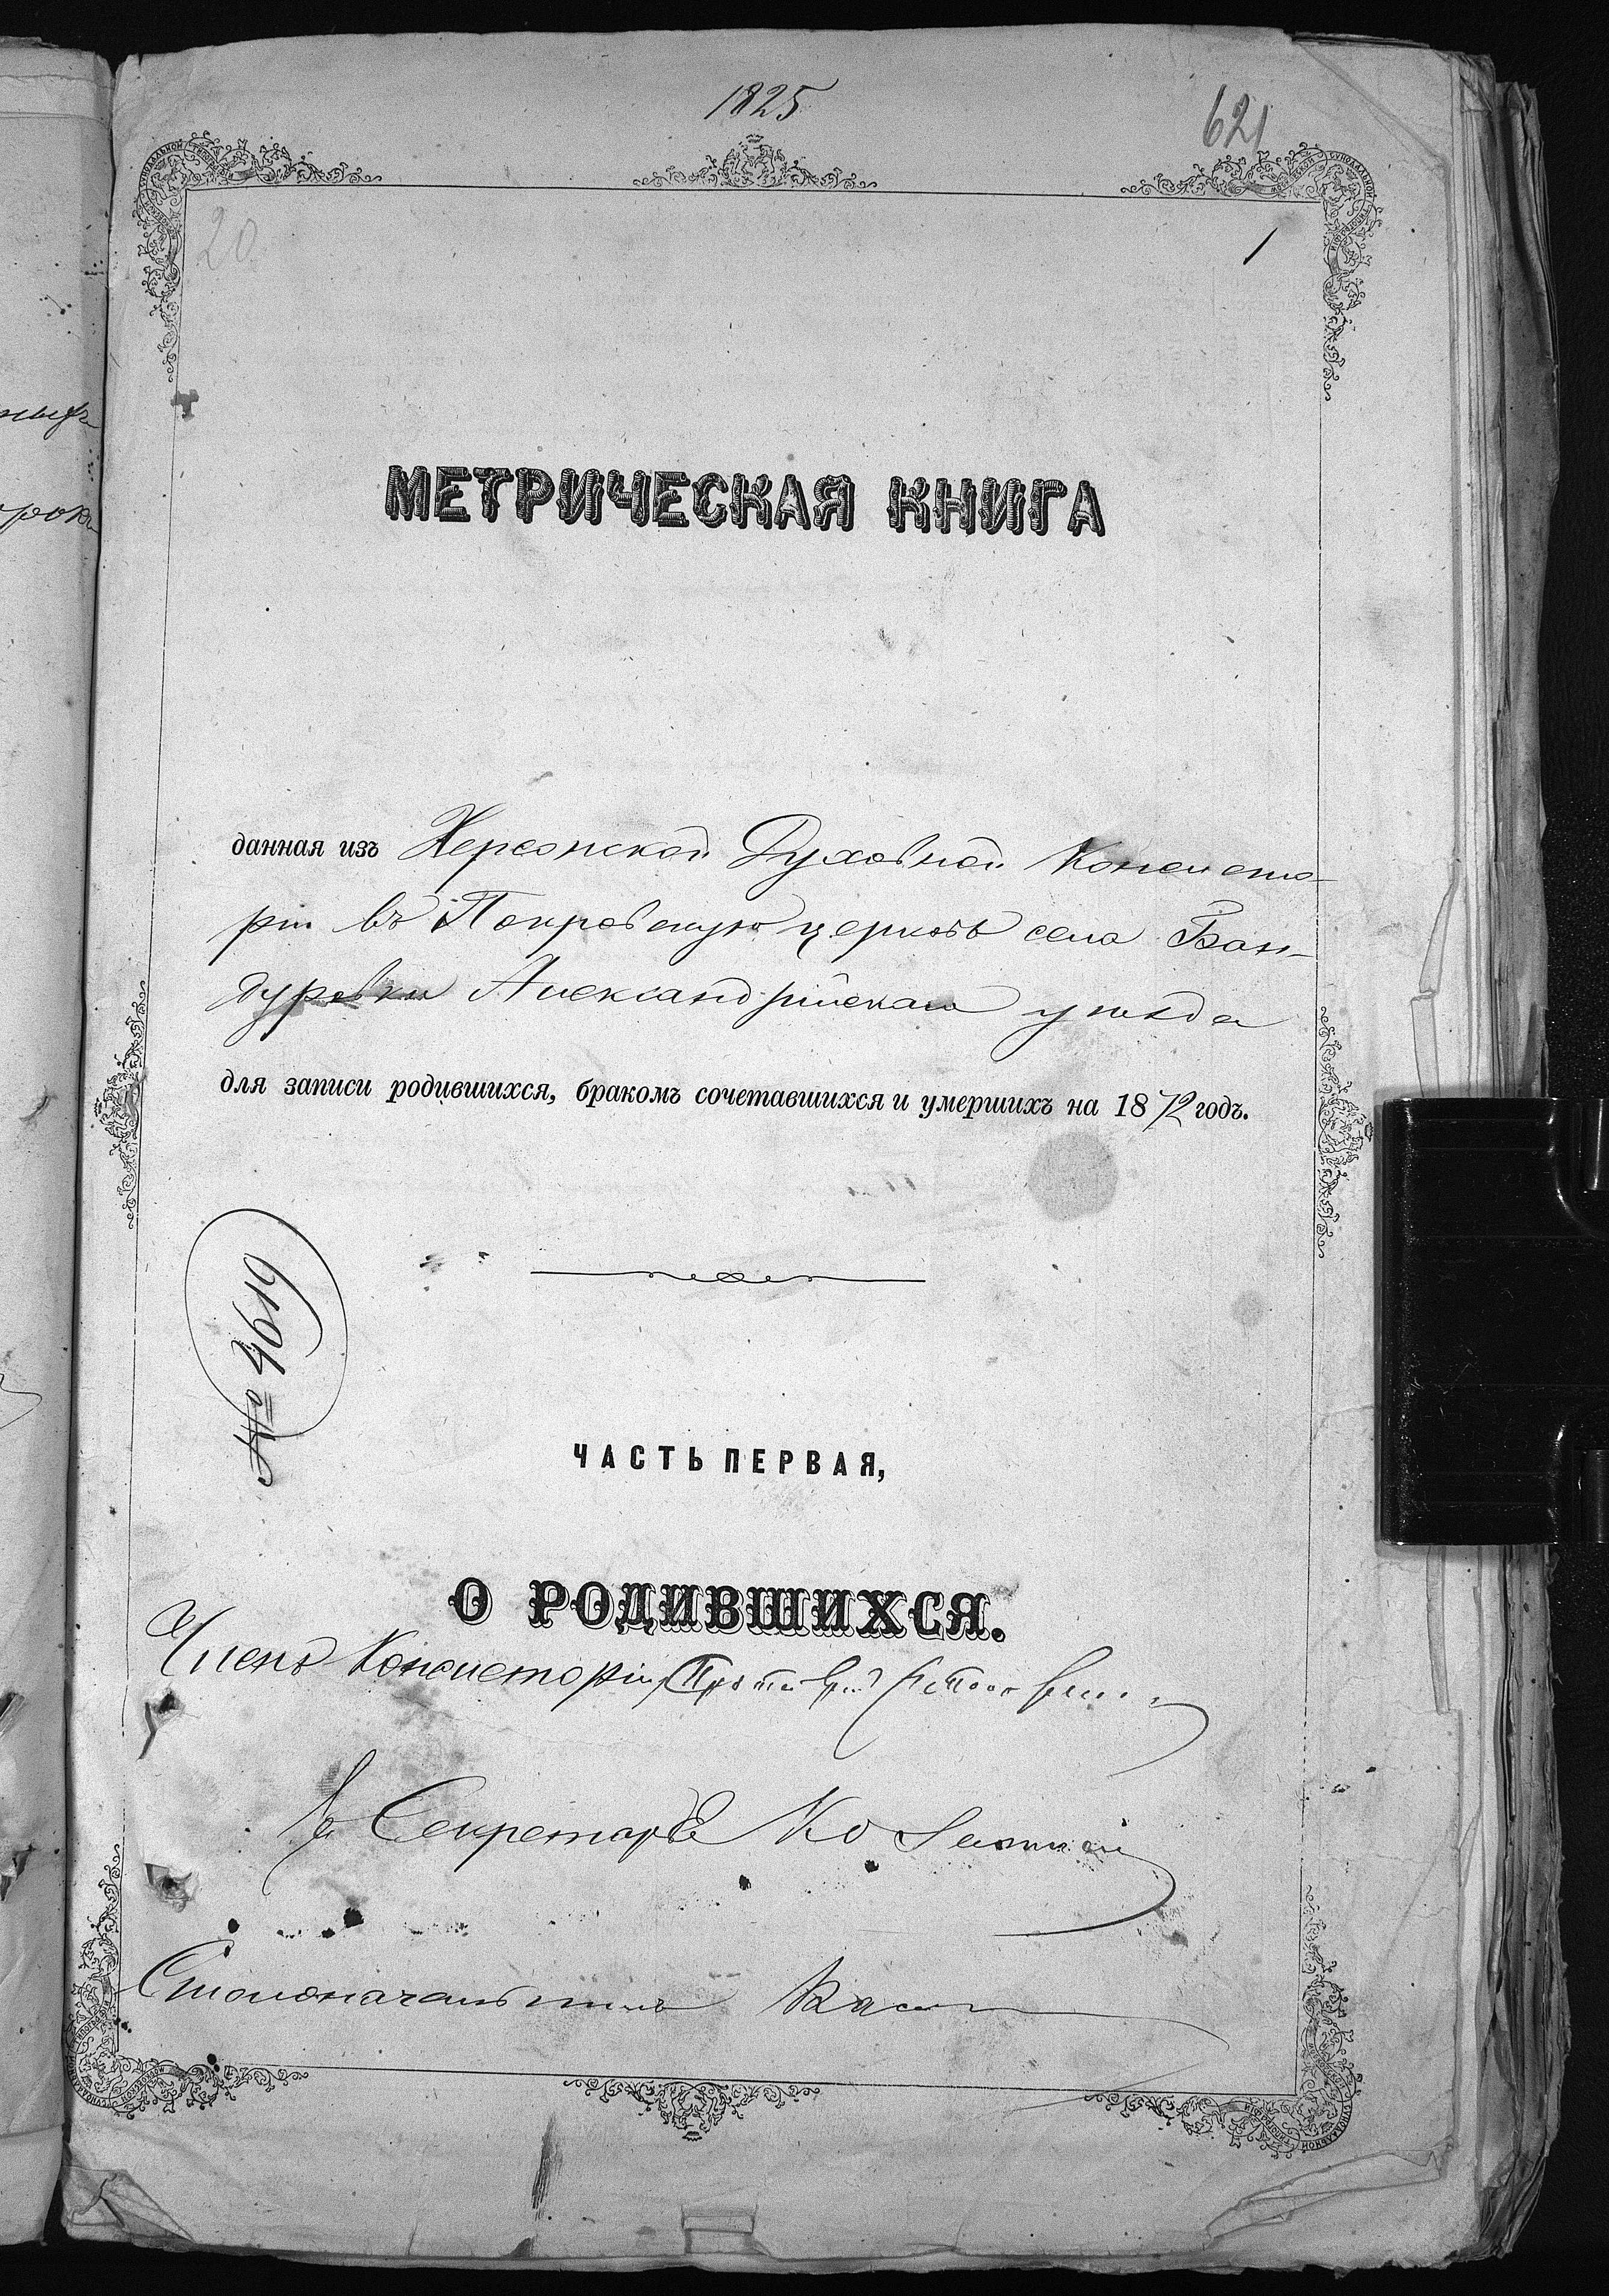 1825
621
20
1
МЕТРИЧЕСКАЯ КНИГА
данная изъ Херсонской Духовной Консисто-
ріи въ Покровскую церковь села Бан-
дуровки Александрійскаго уѣзда
для записи родившихся, бракомъ сочетавшихся и умершихъ на 1872 годъ.
№ 4619
ЧАСТЬ ПЕРВАЯ,
О РОДИВШИХСЯ.
Членъ Консисторіи, Протоіерей
Секретарь
Столоначальникъ